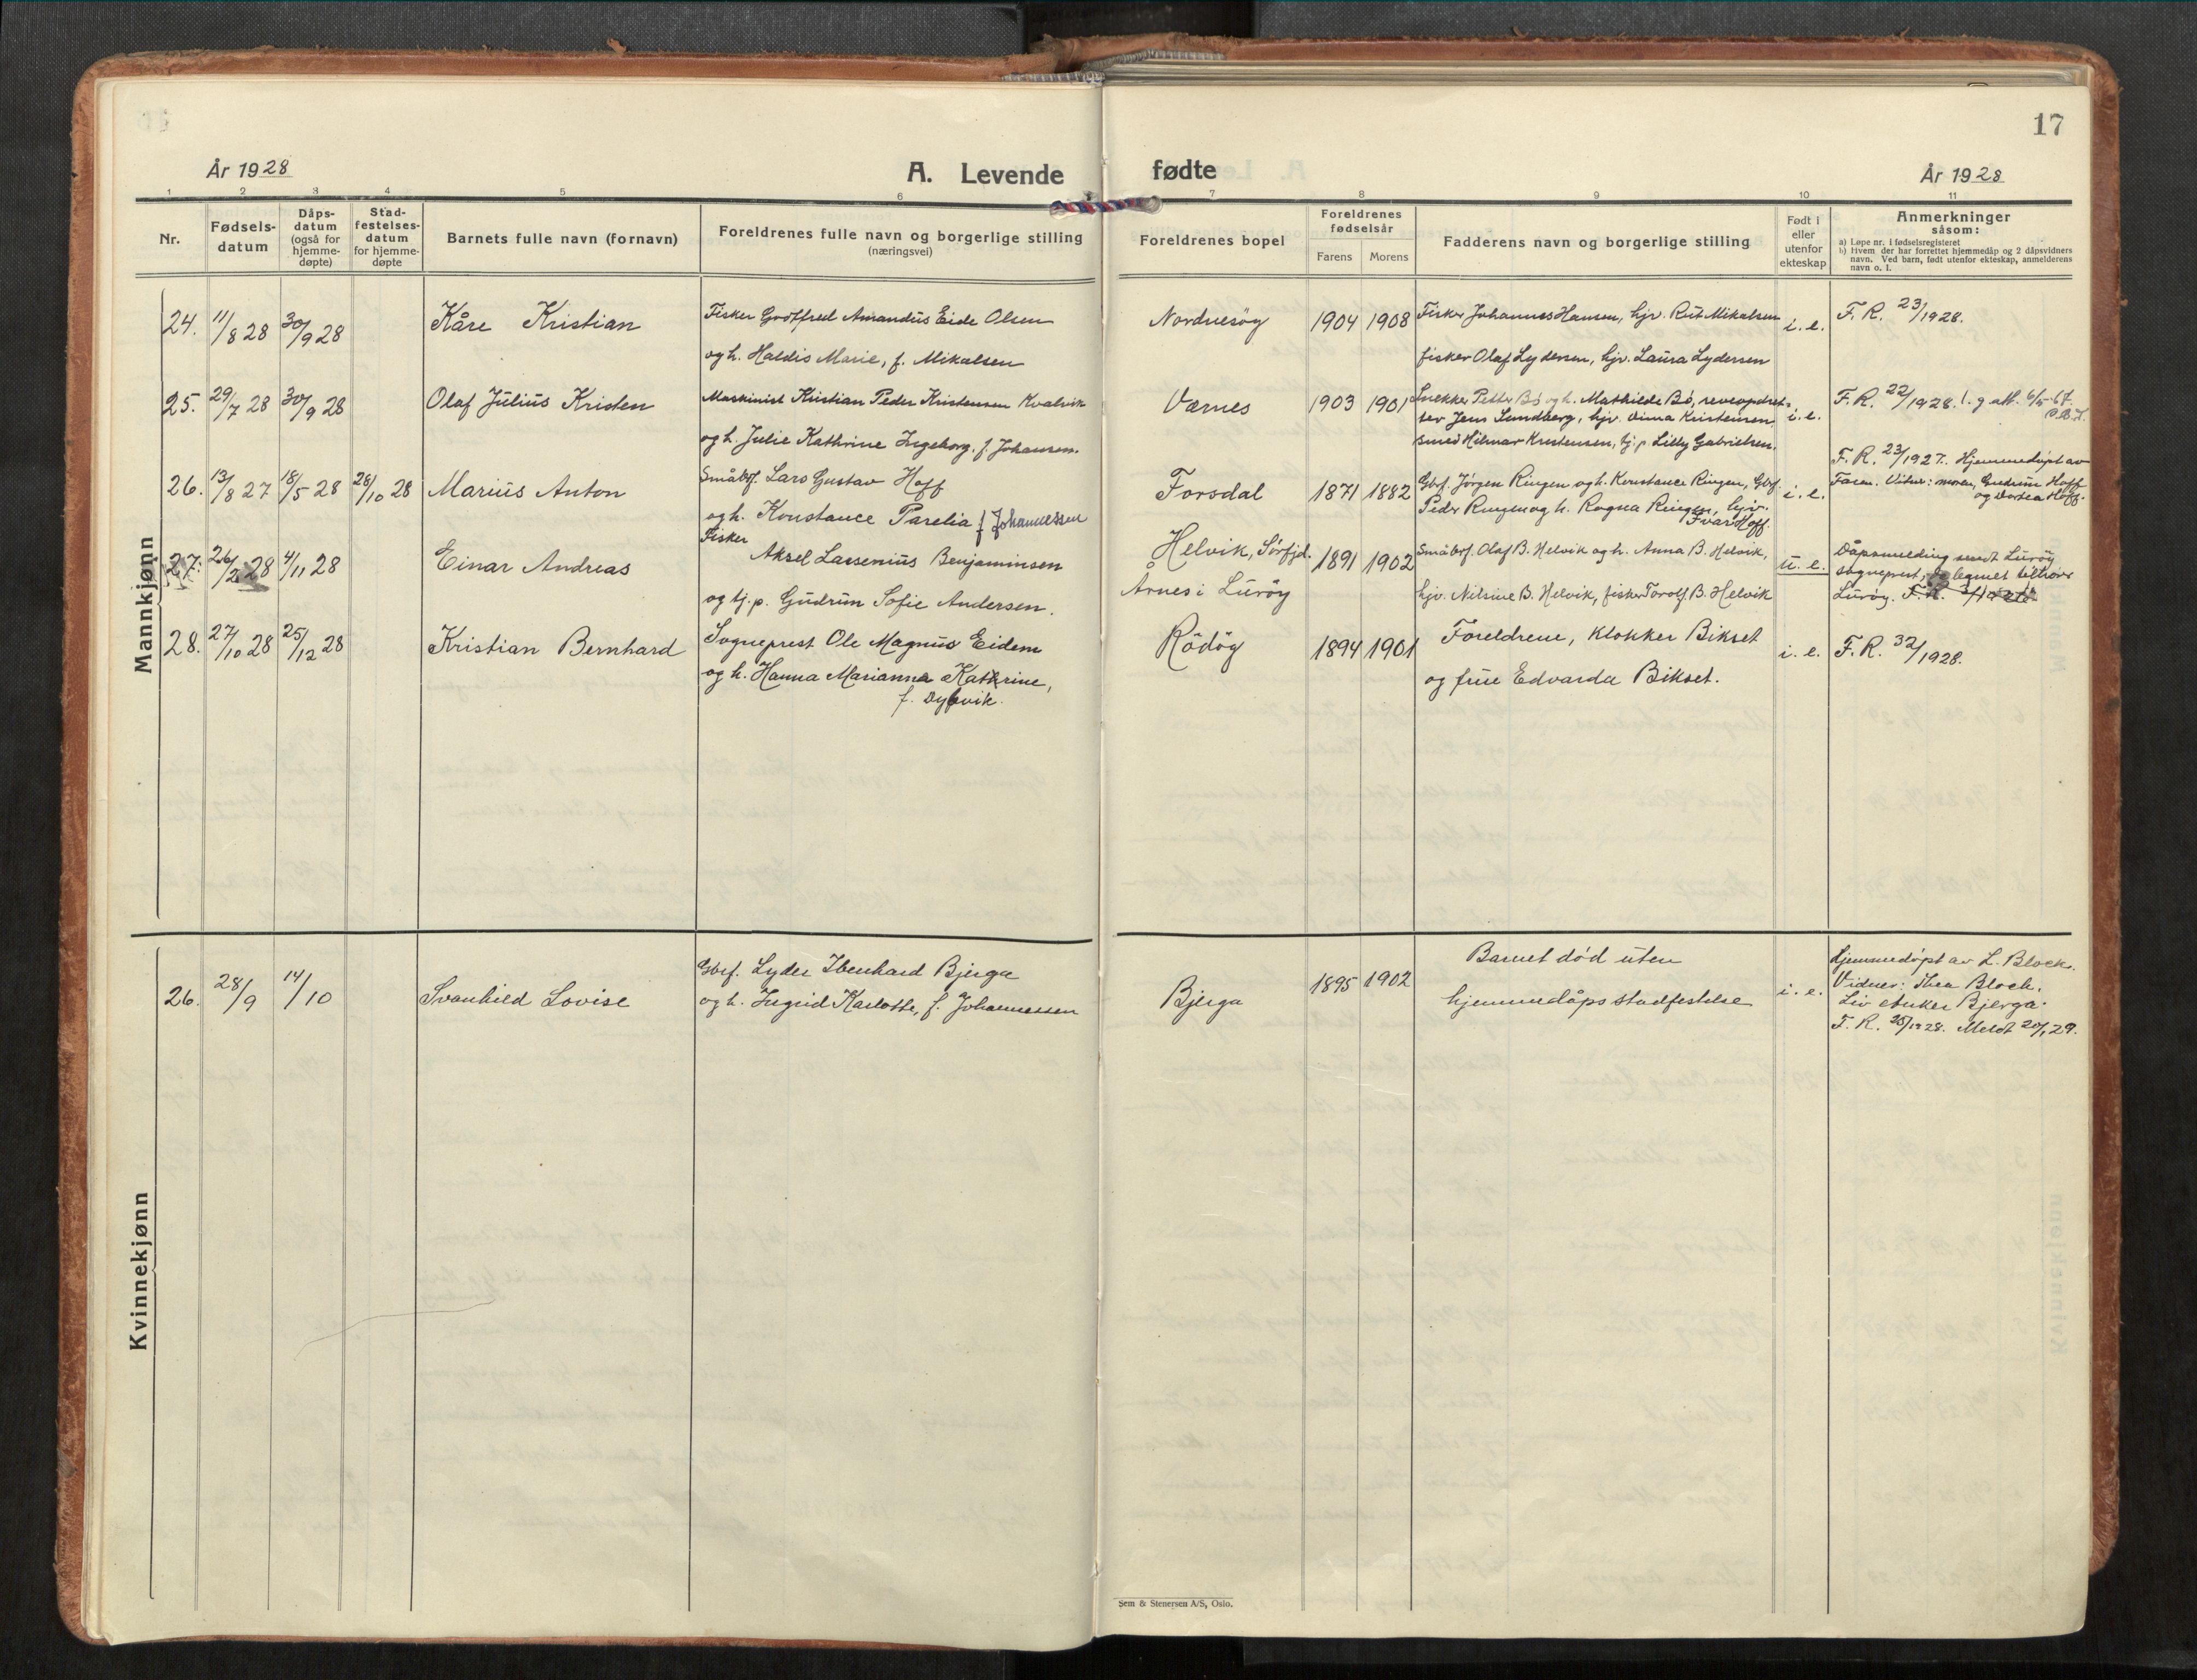 17
År 1928
A. Levende
fødte
År 1928
1 2 3 4 5 6 7 8 9 10 11
Nr.
Fødsels-
datum
Dåps-
datum
(også for
hjemme-
døpte)
Stad-
festelses-
datum
for hjemme-
døpte
Barnets fulle navn (fornavn)
Foreldrenes fulle navn og borgerlige stilling
(næringsvei)
Foreldrenes bopel
Foreldrenes
fødselsår
Farens Morens
Fadderens navn og borgerlige stilling
Født i
eller
utenfor
ekteskap
Anmerkninger
såsom:
a) Løpe nr. i fødselsregisteret
b) Hvem der har forrettet hjemmedåp og 2 dåpsvidners
navn. Ved barn, født utenfor ekteskap, anmelderens
navn o. l.
Mannkjønn
24. 11/8 28 30/9 28 Kåre Kristian
Fisker Gottfred Amandus Eide Olsen
og h. Haldis Marie, f. Mikalsen
Nordnesøy 1904 1908
Fisker Johannes Hansen, hjv. Rut Mikalsen
fisker Olaf Lydersen, hjv. Laura Lydersen
i. e. F. R. 23/1928.
25. 29/7 28 30/9 28 Olaf Julius Kristen
Maskinist Kristian Peder Kristensen Kvalvik
og h. Julie Kathrine Ingeborg, f. Johansen.
Værnes 1903 1901
Snekker Petter Bö og h. Mathilde Bö, reveopdret-
ter Jens Sundberg, hjv. Kristensen
smed Hilmar Kristensen, tj. p. Lilly Gabrielsen.
i. e. F. R. 22/1928. l. g att. 6/5-67.
26. 13/8 27 18/5 28 28/10 28 Marius Anton
Småbrf. Lars Gustav Hoff
og h. Konstance Parelia f. Johannessen
Forsdal 1871 1882
Gbrf. Jörgen Ringen og h. Konstance Ringen, Gbrf.
Peder Ringen og h. Ragna Ringen, hjv.
Ivar Hoff.
i. e.
F. R. 23/1927. Hjemmedöpt av
Faren. Vitner: moren, Gudrun Hoff
og Dortea Hoff.
27. 26/2 28 4/11 28 Einar Andreas
Fisker
Aksel Lassenius Benjaminsen
og tj. p. Gudrun Sofie Andersen.
Helvik, Sörfjd.
Årnes i Luröy
1891 1902
Småbrf. Olaf B. Helvik og h. Anna B. Helvik,
hjv. Nilsine B. Helvik, fisker Torolf B. Helvik
u. e.
Dåpsmelding sendt Luröy
sogneprest, da barnet tilhører
Luröy. F. R.
28. 27/10 28 25/12 28 Kristian Bernhard
Sogneprest Ole Magnus Eidem
og h. Hanna Marianna Katrine,
f. Dybvik.
Rödöy 1894 1901
Foreldrene, klokker Bikset
og frue Edvarda Bikset.
i. e. F. R. 32/1928.
Kvinnekjønn
26. 28/9 14/10 Svanhild Lovise
Gbrf. Lyder Ibenhard Bjerga
og h. Ingrid Karlotte, f. Johannessen
Bjerga 1895 1902
Barnet död uten
hjemmedåps stadfestelse
i. e.
Hjemmedöpt av L. Bloch.
Vidner: Thea Bloch.
Liv Bjerga.
F. R. 26/1928. Meldt 20/1 29.
Sem & Stenersen A/S, Oslo.